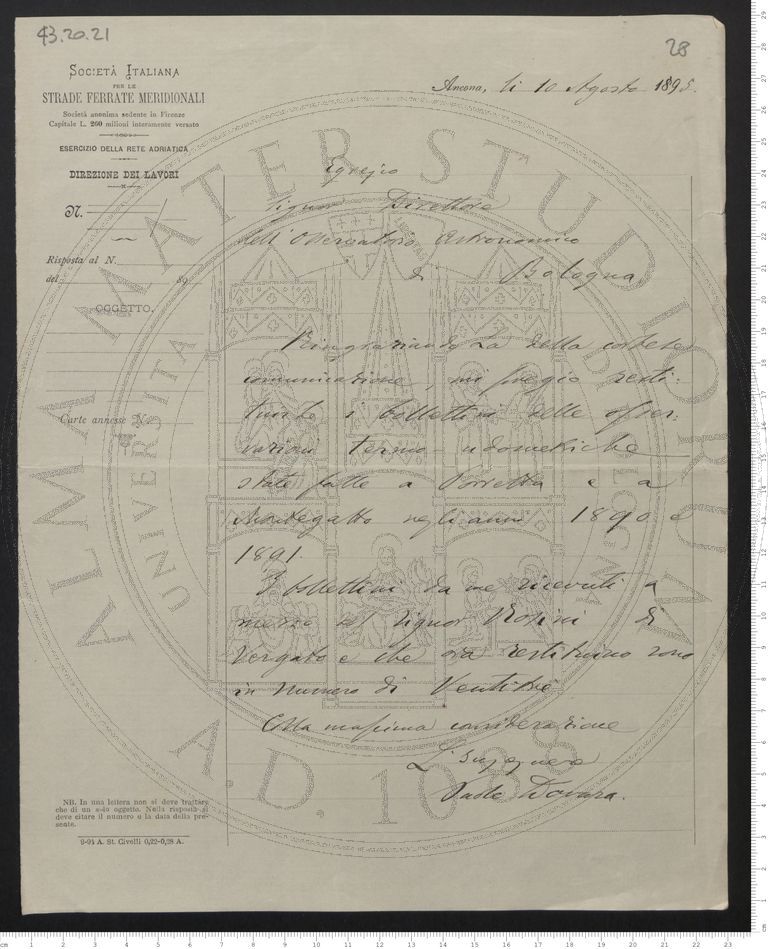 43.20.21
28
SOCIETÀ ITALIANA
PER LE
STRADE FERRATE MERIDIONALI
Società anonima sedente in Firenze
Capitale L. 260 milioni interamente versato
ESERCIZIO DELLA RETE ADRIATICA
DIREZIONE DEI LAVORI
N.
Risposta al N.
del 89
OGGETTO.
Carte annesse N.
Ancona, li 10 Agosto 1895.
Egregio
Signor Direttore
dell'Osservatorio Astronomico
di Bologna
Ringraziando La della cortese
comunicazione, mi pregio resti=
tuirle i bollettini delle osser=
vazioni termo-udometriche
state fatte a Porretta e a
Montegatto negli anni 1890 e
1891.
I bollettini da me ricevuti a
mezzo del Signor di
Vergato e che ora restituisco sono
in numero di Ventitrè
Colla massima considerazione
L'Ingegnere
NB. In una lettera non si deve trattare
che di un solo oggetto. Nella risposta si
deve citare il numero e la data della pre-
sente.
9-94 A. St. Civelli 0,22-0,28 A.
ALMA MATER STUDIORUM
UNIVERSITÀ
A.D. 1088